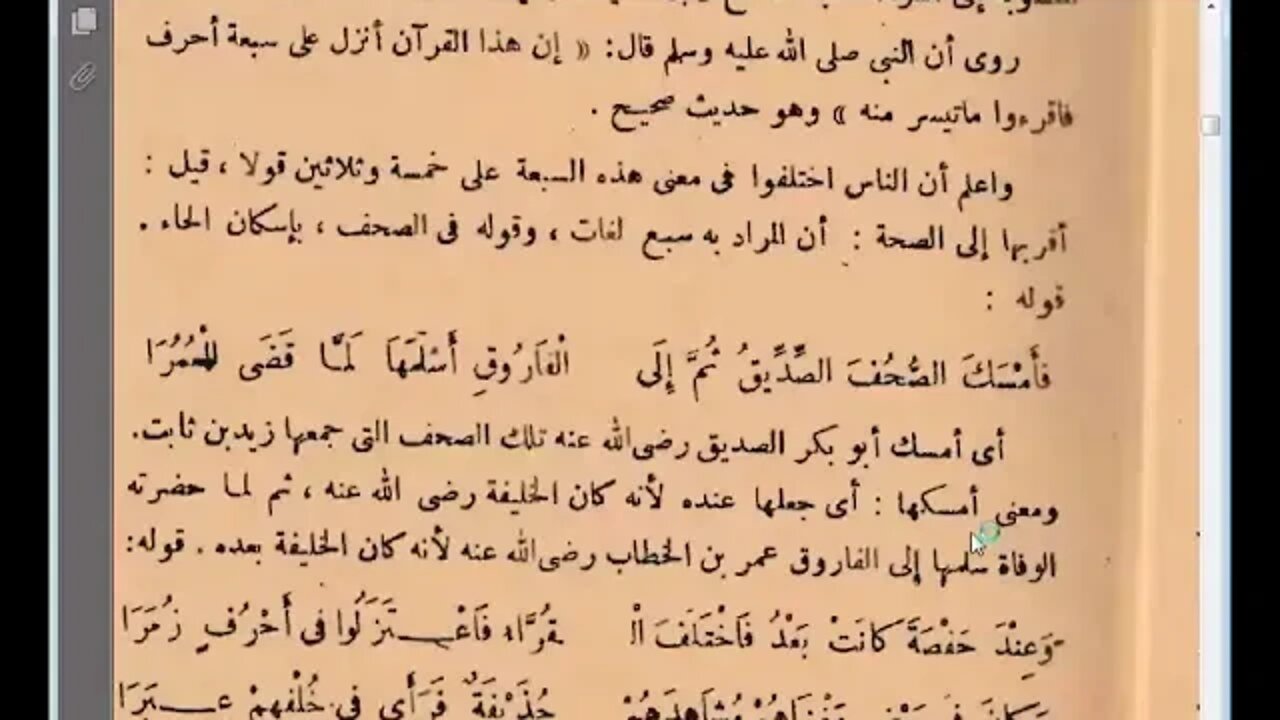 روى أن النبي صلى الله عليه وسلم قال: « إن هذا القرآن أنزل على سبعة أحرف
فاقرءوا ماتيسر منه » وهو حديث صحيح .
واعلم أن الناس اختلفوا فى معنى هذه السبعة على خمسة وثلاثين قولا ، قيل :
أقربها إلى الصحة : أن المراد به سبع لغات ، وقوله فى الصحف ، بإسكان الحاء .
قوله :
فَأَمْسَكَ الصُّحُفَ الصِّدِّيقُ ثُمَّ إِلَى الْفَارُوقِ أَسْلَمَهَا لَمَّا قَضَى الْعُمُرَا
أى أمسك أبو بكر الصديق رضى الله عنه تلك الصحف التى جمعها زيد بن ثابت.
ومعنى أمسكها : أى جعلها عنده لأنه كان الخليفة رضى الله عنه ، ثم لما حضرته
الوفاة سلمها إلى الفاروق عمر بن الخطاب رضى الله عنه لأنه كان الخليفة بعده . قوله:
وَعِنْدَ حَفْصَةَ كَانَتْ بَعْدُ فَاخْتَلَفَ الْ قُرَّاء فَاعْتَزَلُوا فى أَحْرُفٍ زُمَرَا
حُذَيْفَةٌ فَرَأَى فى خُلْفِهِمْ عِبَرَا